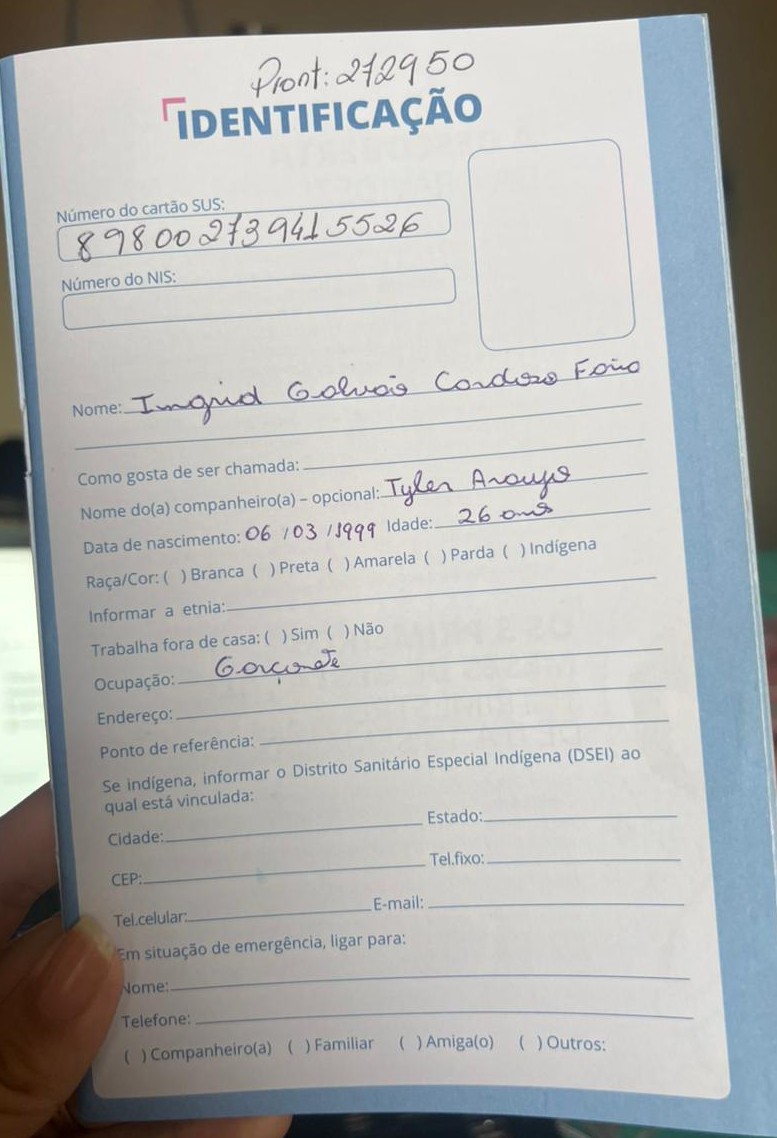 Pront: 272950
IDENTIFICAÇÃO
Número do cartão SUS:
898002739415526
Número do NIS:
Nome: Ingrid Galvão Cardoso Faria
Como gosta de ser chamada:
Nome do(a) companheiro(a) – opcional: Tyler Araujo
Data de nascimento: 06 / 03 / 1999 Idade: 26 anos
Raça/Cor: ( ) Branca ( ) Preta ( ) Amarela ( ) Parda ( ) Indígena
Informar a etnia:
Trabalha fora de casa: ( ) Sim ( ) Não
Ocupação: Garçonete
Endereço:
Ponto de referência:
Se indígena, informar o Distrito Sanitário Especial Indígena (DSEI) ao
qual está vinculada:
Cidade: Estado:
CEP: Tel.fixo:
Tel.celular: E-mail:
Em situação de emergência, ligar para:
Nome:
Telefone:
( ) Companheiro(a) ( ) Familiar ( ) Amiga(o) ( ) Outros: